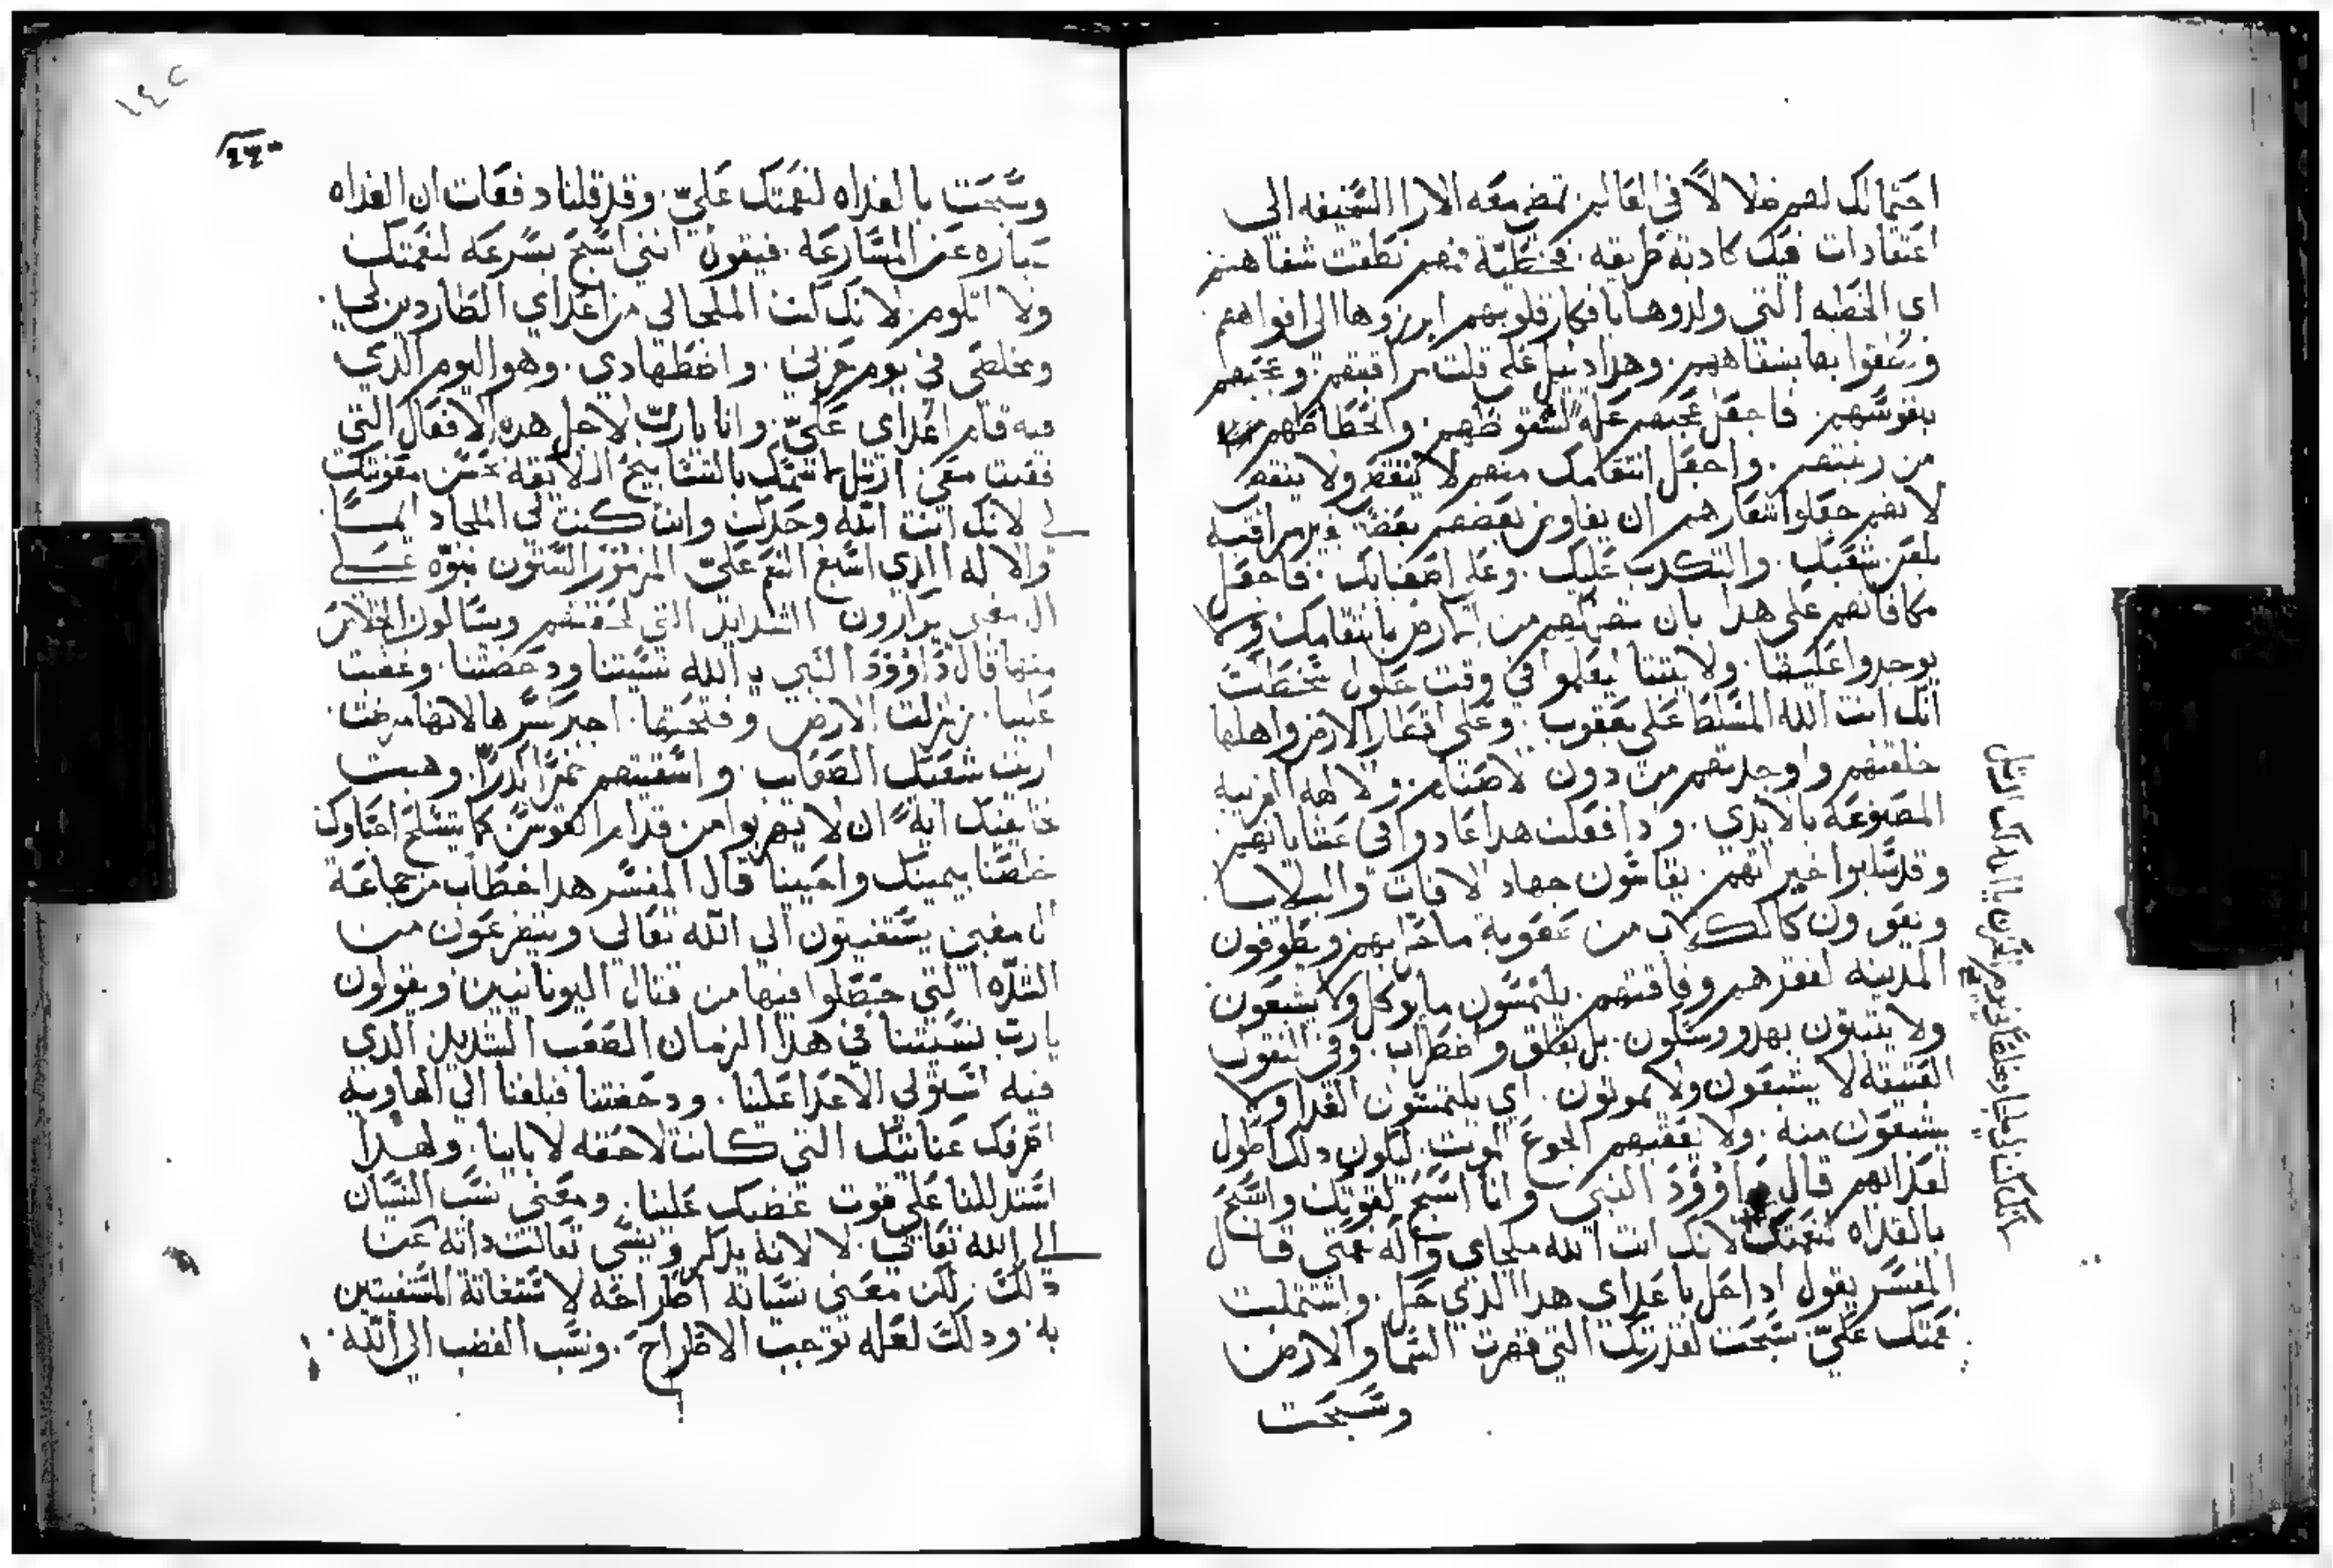 احتمالك لهم ضلالاً في العالم. تمضي معه الارا السخيفه الى
اعتقادات فيك كادبة طريقه. فخطية فمهم نطقت شفاههم
اي الخطيه التي ولدوها بافكار قلوبهم ابرزوها الى افواههم
بها بشفاههم. وهدا دليل على قلت مراقبتهم. وعجبهم
بنفوسهم. فاجعل عجبهم علة لسقوطهم. وانحطاطهم
من رتبتهم. واجعل انتقامك منهم لا ينقض ولا ينقص
لانهم جعلوا شعارهم ان يفاوض بعضهم بعضا في مراقبة
بلعن شعبك. والتكدب عليك. وعلى اصفيايك. فاجعل
مكافاتهم على هدا بان تستاصلهم من الارض بانتقامك ولا
يوجدوا عليها. ولا يتنا ليعلموا في وقت حلول سخطك
انك انت الله المسلط على يعقوب. وعلى اقطار الارض واهلها
خلقتهم واوجدتهم من دون الاصنام. والالهه الغريبه
المصنوعه بالايدي. و دا فعلت هدا عادوا في عشاياتهم
وقد سلبوا خيراتهم. يقاسون جهاد الافات والبلايا
ويعوون كالكلاب من عقوبة ما حل بهم ويطوفون
المدينه لفقرهم وفاقتهم. يلتمسون مايوكل ولا يشبعون
ولا يبيتون بهدو وسكون. بل بقلق واضطراب. وفي النقول
العتيقه لا يشبعون ولا يموتون. اي يلتمسون الغدا ولا
يشبعون منه. ولا يعقبهم الجوع الموت. ليكون دلك اطول
لعدابهم قال داوود النبي وانا اسبح لقوتك واسبح
بالغداه لنعمتك لانك انت الله ملجاي واله نعمتي قال
المفسر يقول اد احل باعداي هدا الدي حل. واشتملت
نعمتك علي سبحت لقدرتك التي قهرت السما والارض
وسبحت
وسبحت بالغداه لنعمتك علي. وقد قلنا دفعات ان الغداه
عباره عن المسارعه. فيقول انني اسبح بسرعه لنعمتك
ولا اتلوم. لانك كنت الملجا لي من اعداي الطاردين لي
ومخلصي في يوم حزني. واضطهادي. وهو اليوم الدي
فيه قام اعداي علي. وانا يارب لاجل هده الافعال التي
فعلت معي ارتل باسمك بالتسابيح اللايقه معونتك
لي لانك انت الله وحدك وانت كنت لي الملجا
والاله الدي اسبغ النعم علي المزمور الستون نبوه على
ال مقبي يرارون الشدايد التي لحقتهم ويسالون الخلاص
منها قال داوود النبي يا الله نسيتنا ودحضتنا. وغضبت
علينا. زلزلت الارض وفتحتها. اجبر كسرها لانها مرضت.
اريت شعبك الصعاب. واسقيتهم خمراً كدراً. وهبت
خايفيك ايةً ان لا يهربوا من قدام القوس كما يتسلح احباوك
خلصنا بيمينك واجبينا قال المفسر هدا خطاب من جماعة
ال مقبي يستغيتون الى الله تعالى ويتضرعون من
الشده التي حصلوا فيها من قتال اليونانيين ويقولون
يارب نسيتنا في هدا الزمان الصعب الشديد الدي
فيه استولي الاعدا علينا. ودحضتنا فبلغنا الى الهاويه
اعرفك عنايتك التي كانت لاحقه لاباينا. ولهدا
استدللنا على قوت غضبك علينا. ومعنى نسب النسيان
الى الله تعالى. لا لانه يدكر وينسى تعالت داته عن
دلك. لكن معنى نسيانه اطراحه لاستغاتة المستغيتين
به. ودلك لعله توجب الاطراح. ونسب الغضب الى الله.